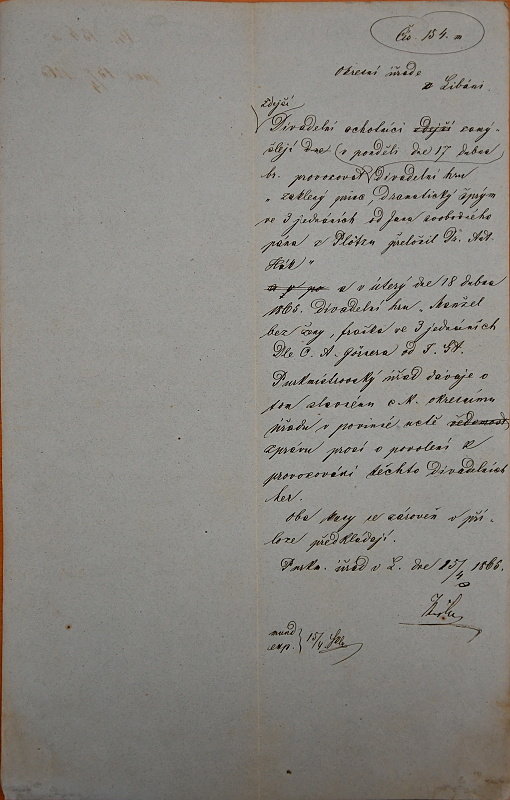 Čís. 154. m
Okresní úřade
v Libáni.
Zdejší
Divadelní ochotníci zdejší zamý-
šlejí dne v pondělí dne 17 dubna
br. provozovat Divadelní hru
„ zakletý princ, dramatický žert
ve 3 jednáních od Jana svobodného
pána z Plötzu přeložil Dr. Ant.
Hák "
a v úterý dne 18 dubna
1865. Divadelní hru „ Manžel
bez ženy, fraška ve 3 jednáních
Dle C. A. Görnera od J. St.
Purkmistrovský úřad dávaje o
tom slavnému c. k. okresnímu
úřadu v povinné úctě vědomost
zprávu prosí o povolení k
provozování těchto Divadelních
her.
Oba kusy se zároveň v pří-
loze předkládají.
Purkm. úřad v L. dne 15/4 1865.
mund
exp. 15/4